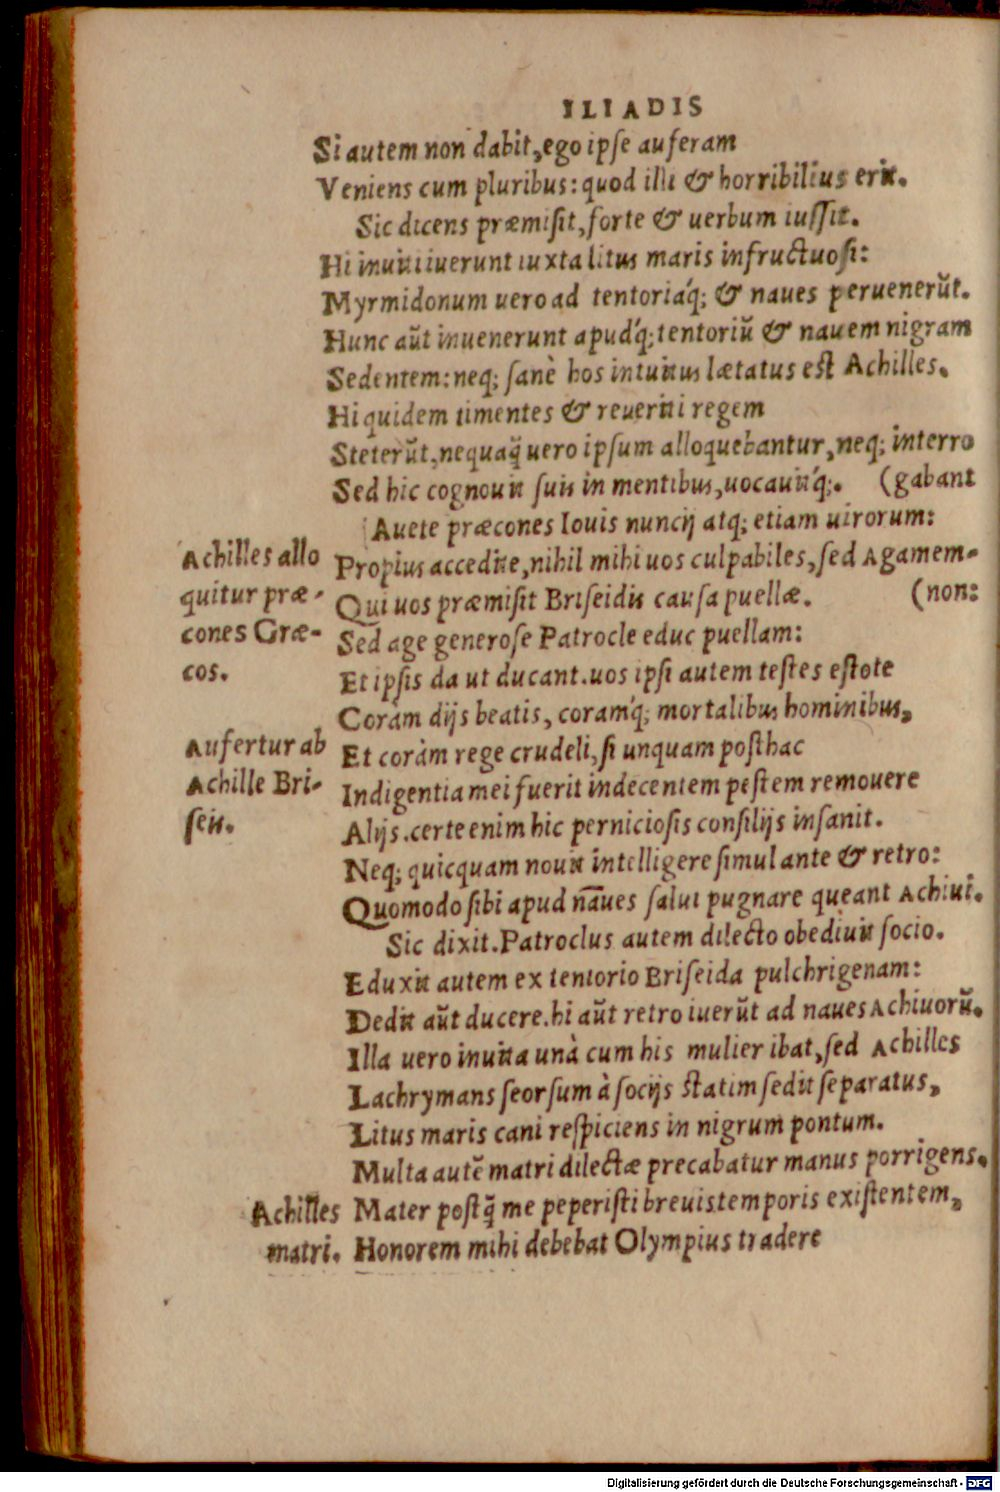 ILIADIS
Si autem non dabit, ego ipse auferam
Veniens cum pluribus: quod illi & horribilius erit.
Sic dicens præmisit, forte & uerbum iussit.
Hi inuiti iuerunt iuxta litus maris infructuosi:
Myrmidonum uero ad tentoriáq; & naues peruenerūt.
Hunc aūt inuenerunt apudq́; tentoriū & nauem nigram
Sedentem: neq; sanè hos intuitus lætatus est Achilles.
Hi quidem timentes & reueriti regem
Steterūt, nequaq̃ uero ipsum alloquebantur, neq; interro
Sed hic cognouit suis in mentibus, uocauitq́;. (gabant
Auete præcones Iouis nuncij atq; etiam uirorum:
Achilles allo
quitur præ-
cones Græ-
cos.
Propius accedite, nihil mihi uos culpabiles, sed Agamem-
Qui uos præmisit Briseidis causa puellæ. (non:
Sed age generose Patrocle educ puellam:
Et ipsis da ut ducant. uos ipsi autem testes estote
Coràm dijs beatis, coramq́; mortalibus hominibus,
Aufertur ab
Achille Bri-
seis.
Et coràm rege crudeli, si unquam posthac
Indigentia mei fuerit indecentem pestem remouere
Alijs. certe enim hic perniciosis consilijs insanit.
Neq; quicquam nouit intelligere simul ante & retro:
Quomodo sibi apud nāues salui pugnare queant Achiui.
Sic dixit. Patroclus autem dilecto obediuit socio.
Eduxit autem ex tentorio Briseida pulchrigenam:
Dedit aūt ducere. hi aūt retro iuerūt ad naues Achiuorū.
Illa uero inuita unà cum his mulier ibat, sed Achilles
Lachrymans seorsum à socijs statim sedit separatus,
Litus maris cani respiciens in nigrum pontum.
Multa autē matri dilectæ precabatur manus porrigens.
Achilles
matri.
Mater postq̃ me peperisti breuis temporis existentem,
Honorem mihi debebat Olympius tradere
Digitalisierung gefördert durch die Deutsche Forschungsgemeinschaft - DFG